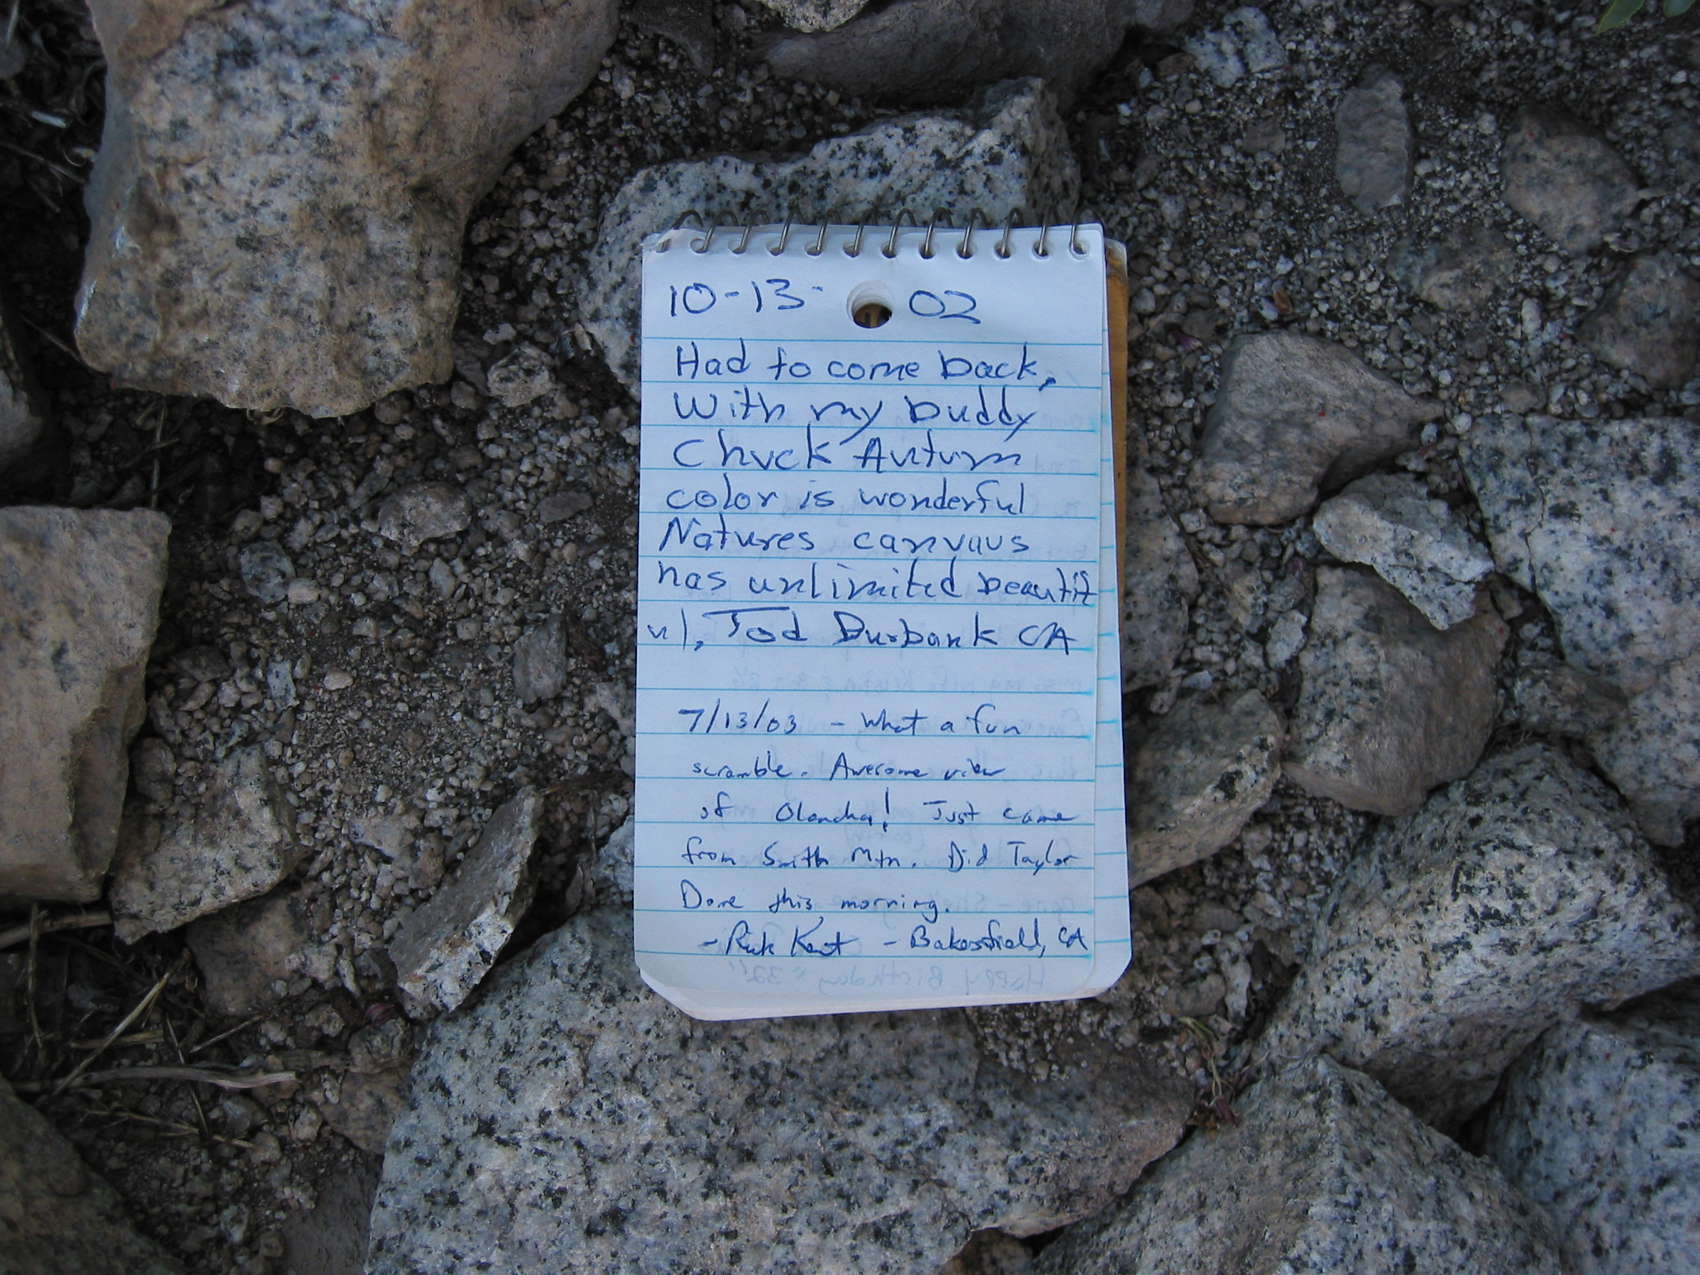 10-13- 02
Had to come back,
With my buddy
Chuck Autum
color is wonderful
Natures canvaus
has unlimited beautif
ul, Tod Burbank CA
7/13/03 - What a fun
scramble. Awesome view
of Olancha! Just came
from Smith Mtn. Did Taylor
Dome this morning.
- Rick Kent - Bakersfield, CA